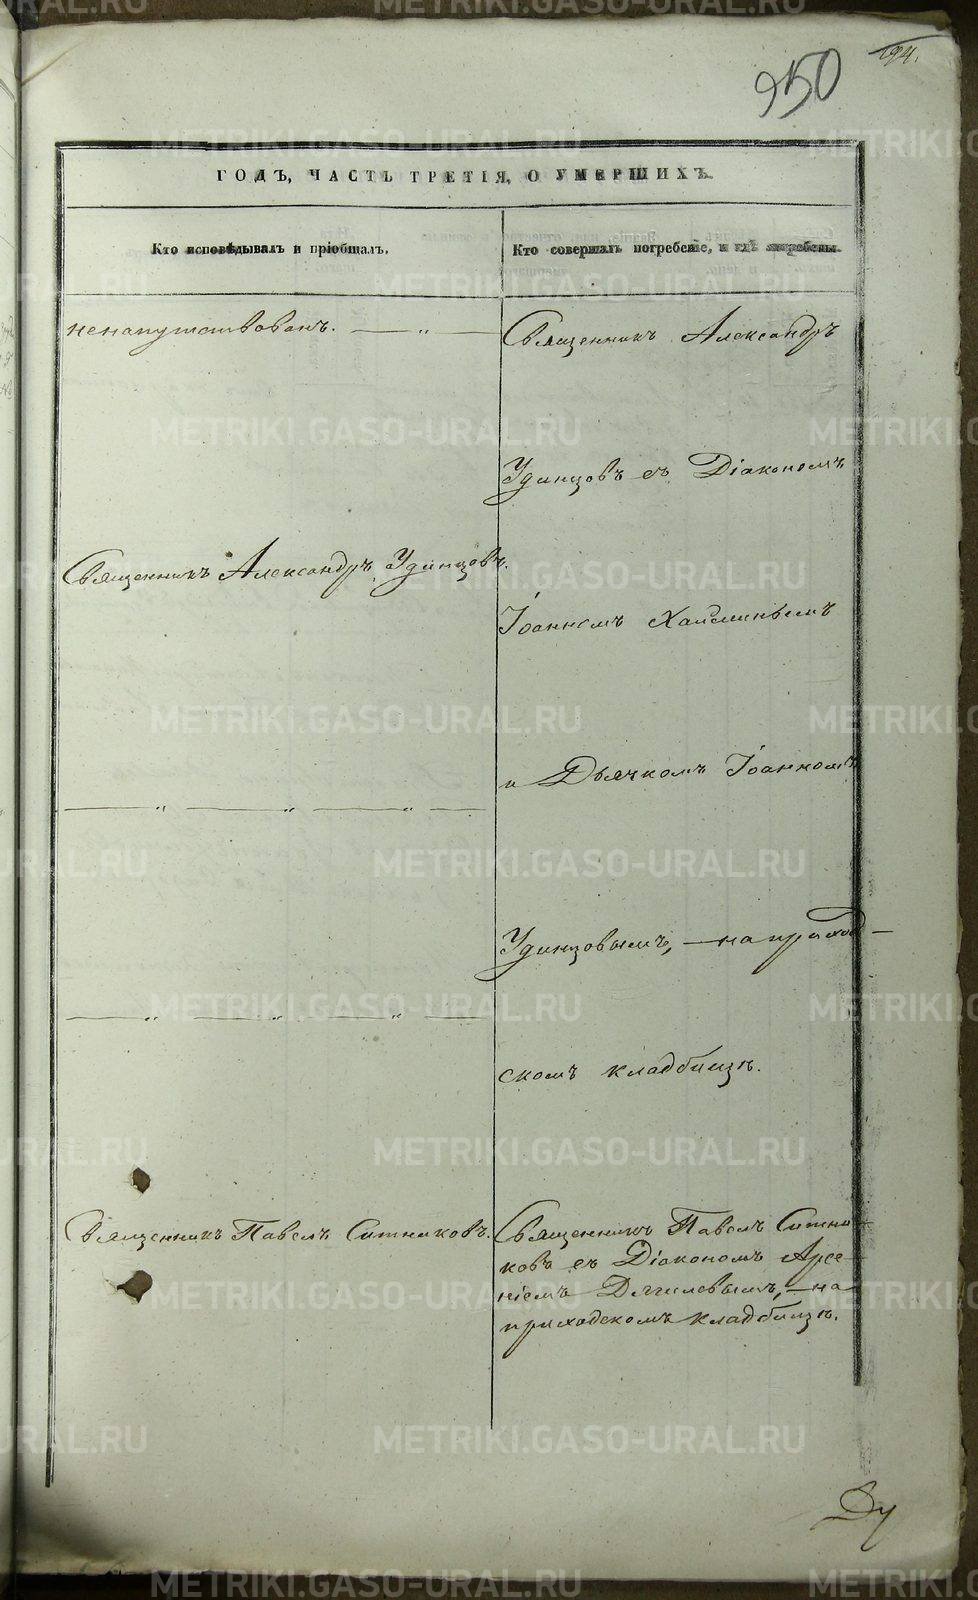 950
194.
ГОДЪ, ЧАСТЬ ТРЕТІЯ, О УМЕРШИХЪ.
Кто исповѣдывалъ и пріобщалъ.
Кто совершалъ погребеніе, и гдѣ погребены.
ненапутствованъ. — „ —
Священникъ Александръ
Удинцовъ съ Діакономъ
Священникъ Александръ Удинцовъ.
Іоанномъ
и Дьячкомъ Іоанномъ
— „ — „ — „ —
Удинцовымъ, — на приход-
— „ — „ — „ —
скомъ кладбищѣ.
Священникъ Павелъ Ситниковъ.
Священникъ Павелъ Ситни-
ковъ съ Діакономъ Арсе-
ніемъ Дягилевымъ, — на
приходскомъ кладбищѣ.
METRIKI.GASO-URAL.RU